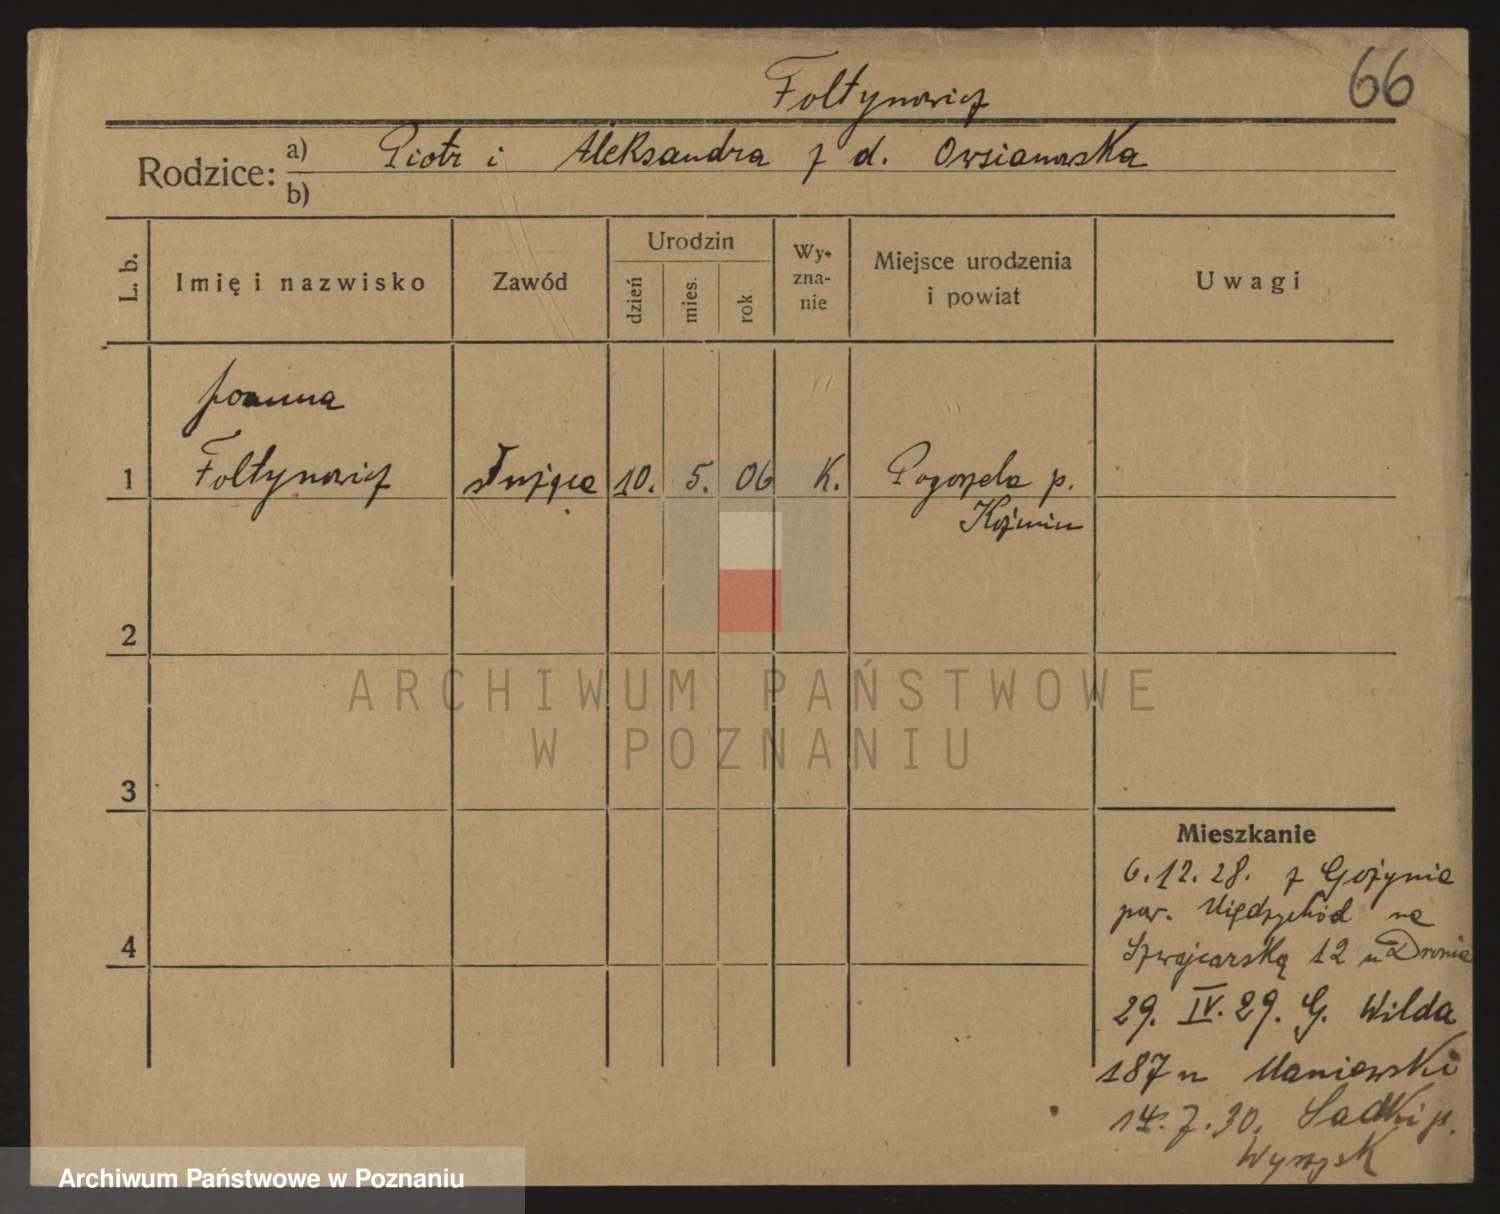 66
Fołtynowicz
Rodzice: a) Piotr i Aleksandra z d. Owsianowska
b)
L. b. Imię i nazwisko Zawód Urodzin dzień mies. rok Wy- zna- nie Miejsce urodzenia i powiat Uwagi
Joanna
1 Fołtynowicz służąca 10. 5. 06 K. Pogorzela p.
Koźmin
2
3
4
Mieszkanie
6.12.28. z Gożynia
pow. Międzychód na
Szwajcarską 12 u Dronia
29. IV. 29. G. Wilda
187 u Maniewski
14.7.30. Sadki p.
Wyrzysk
ARCHIWUM PAŃSTWOWE
W POZNANIU
Archiwum Państwowe w Poznaniu